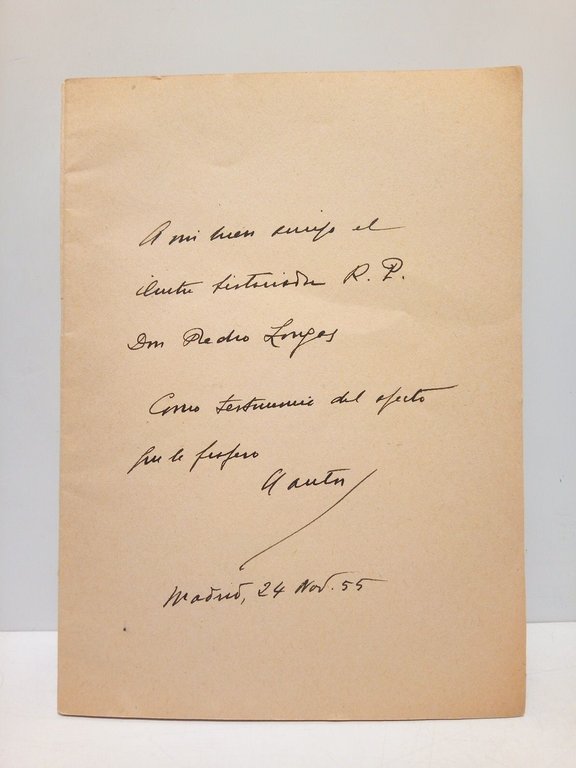 A mi buen amigo el
ilustre historiador R. P.
Don Pedro Longas
Como testimonio del afecto
que le profeso
El autor
Madrid, 24 Nov. 55